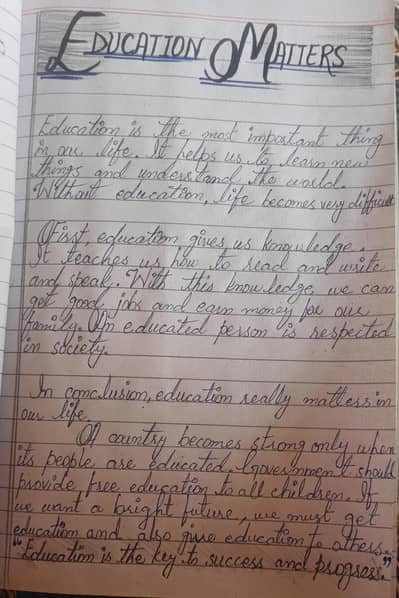 EDUCATION MATTERS
Education is the most important thing
in our life. It helps us to learn new
things and understand the world.
Without education, life becomes very difficult
First, education gives us knowledge.
It teaches us how to read and write
and speak. With this knowledge we can
get good jobs and earn money for our
family. An educated person is respected
in society.
In conclusion, education really matters in
our life.
A country becomes strong only when
its people are educated. Government should
provide free education to all children. If
we want a bright future, we must get
education and also give education to others.
"Education is the key to success and progress."